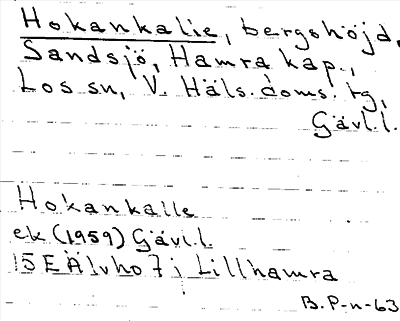 Hokankalie, bergshöjd,
Sandsjö, Hamra kap.,
Los sn, V. Häls. doms. tg,
Gävl.l.
Hokankalle
ek (1959) Gävl.l.
15E Älvho 7 i Lillhamra
B. P-n-63